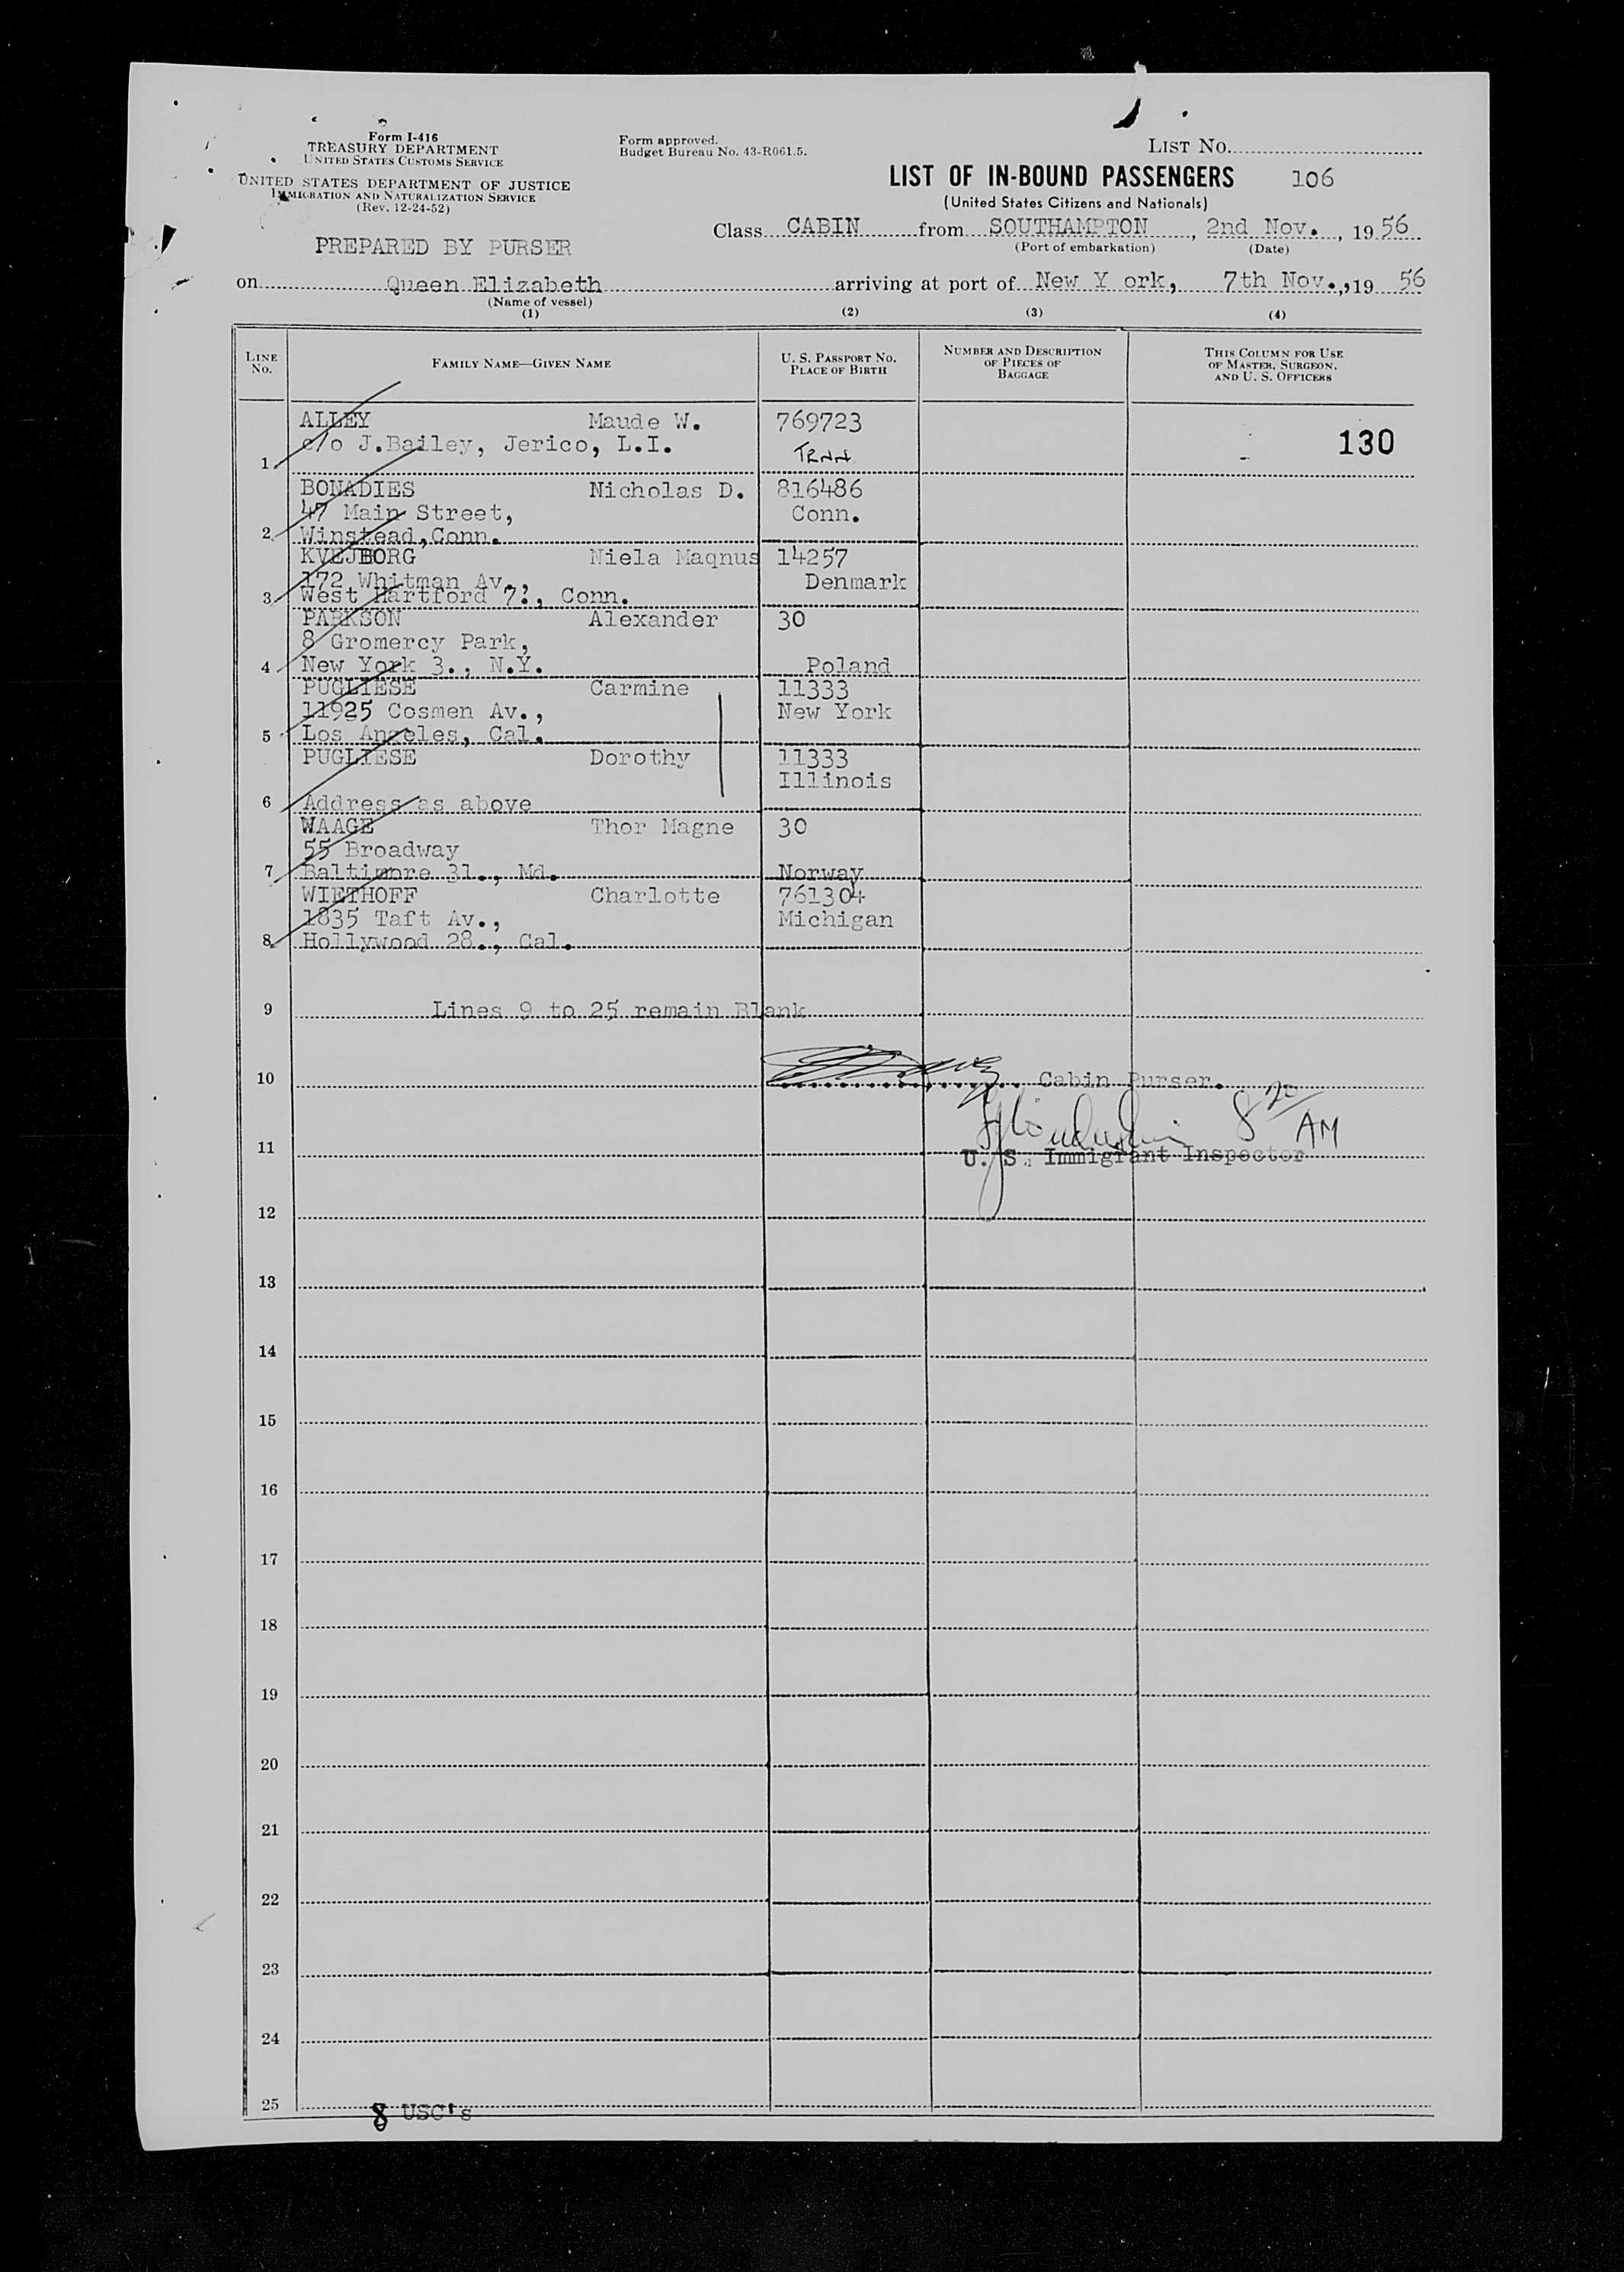 Form I-416
TREASURY DEPARTMENT
UNITED STATES CUSTOMS SERVICE
UNITED STATES DEPARTMENT OF JUSTICE
IMMIGRATION AND NATURALIZATION SERVICE
(Rev. 12-24-52)
Form approved.
Budget Bureau No. 43-R061.5.
LIST NO.
LIST OF IN-BOUND PASSENGERS 106
(United States Citizens and Nationals)
Class CABIN from SOUTHAMPTON, 2nd Nov., 1956
(Port of embarkation) (Date)
PREPARED BY PURSER
on Queen Elizabeth arriving at port of New Y ork, 7th Nov.,,19 56
(Name of vessel)
(1) (2) (3) (4)
LINE NO. FAMILY NAME—GIVEN NAME U. S. PASSPORT NO. PLACE OF BIRTH NUMBER AND DESCRIPTION OF PIECES OF BAGGAGE THIS COLUMN FOR USE OF MASTER, SURGEON, AND U. S. OFFICERS
ALLEY Maude W. 769723
130
1 c/o J.Bailey, Jerico, L.I. Tenn
BONADIES Nicholas D. 816486
47 Main Street, Conn.
2 Winstead,Conn.
KVEJBORG Niela Maqnus 14257
172 Whitman Av., Denmark
3 West Hartford 7., Conn.
PARKSON Alexander 30
8 Gromercy Park,
4 New York 3., N.Y. Poland
PUGLIESE Carmine 11333
11925 Cosmen Av., New York
5 Los Angeles, Cal.
PUGLIESE Dorothy 11333
Illinois
6 Address as above
WAAGE Thor Magne 30
55 Broadway
7 Baltimore 31., Md. Norway
WIETHOFF Charlotte 761304
1835 Taft Av., Michigan
8 Hollywood 28., Cal.
9 Lines 9 to 25 remain Blank
10 Cabin Purser.
8 20 AM
11 U. S. Immigrant Inspector
12
13
14
15
16
17
18
19
20
21
22
23
24
25
8 USC's